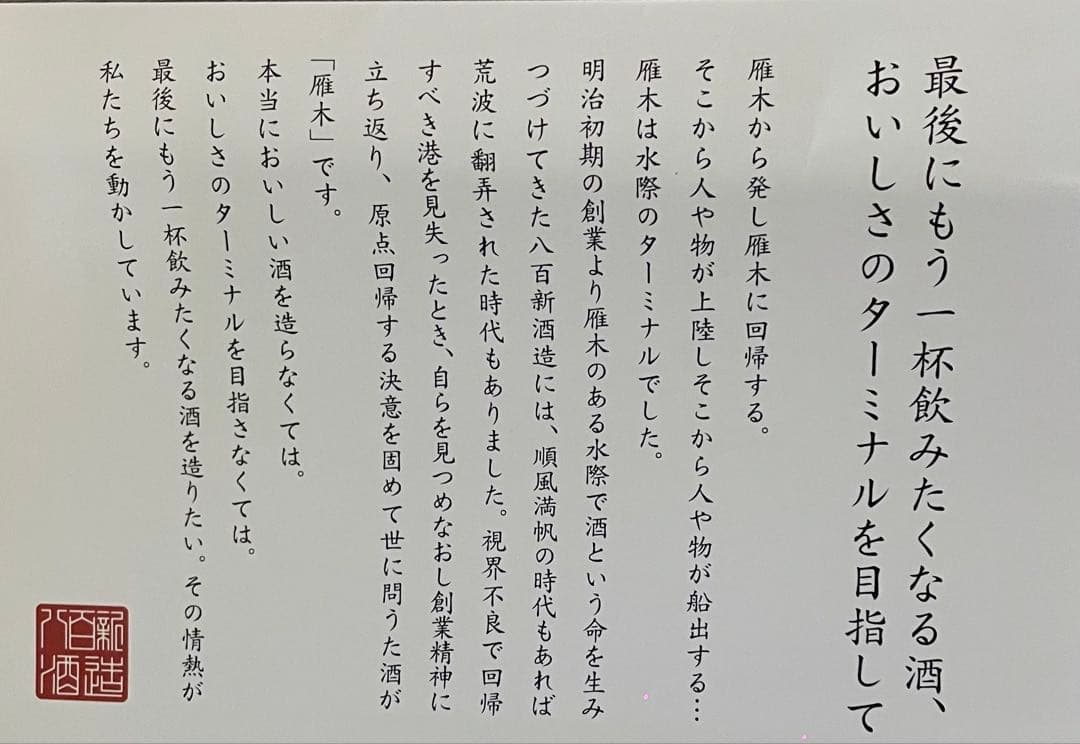 最後にもう一杯飲みたくなる酒、
おいしさのターミナルを目指して
雁木から発し雁木に回帰する。
そこから人や物が上陸しそこから人や物が船出する…
雁木は水際のターミナルでした。
明治初期の創業より雁木のある水際で酒という命を生み
つづけてきた八百新酒造には、順風満帆の時代もあれば
荒波に翻弄された時代もありました。視界不良で回帰
すべき港を見失ったとき、自らを見つめなおし創業精神に
立ち返り、原点回帰する決意を固めて世に問うた酒が
「雁木」です。
本当においしい酒を造らなくては。
おいしさのターミナルを目指さなくては。
最後にもう一杯飲みたくなる酒を造りたい。その情熱が
私たちを動かしています。
八百新
酒造